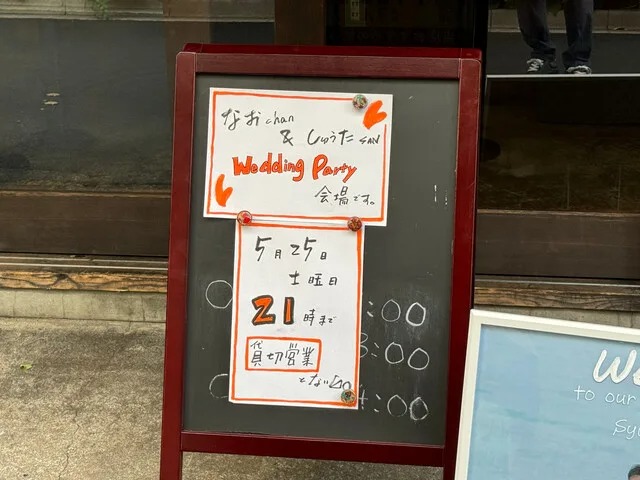 なお chan
& しゅうた SAN
Wedding Party
会場です。
5月25日
土曜日
21時まで
貸切営業
となります
:00
3:00
4:00
to our